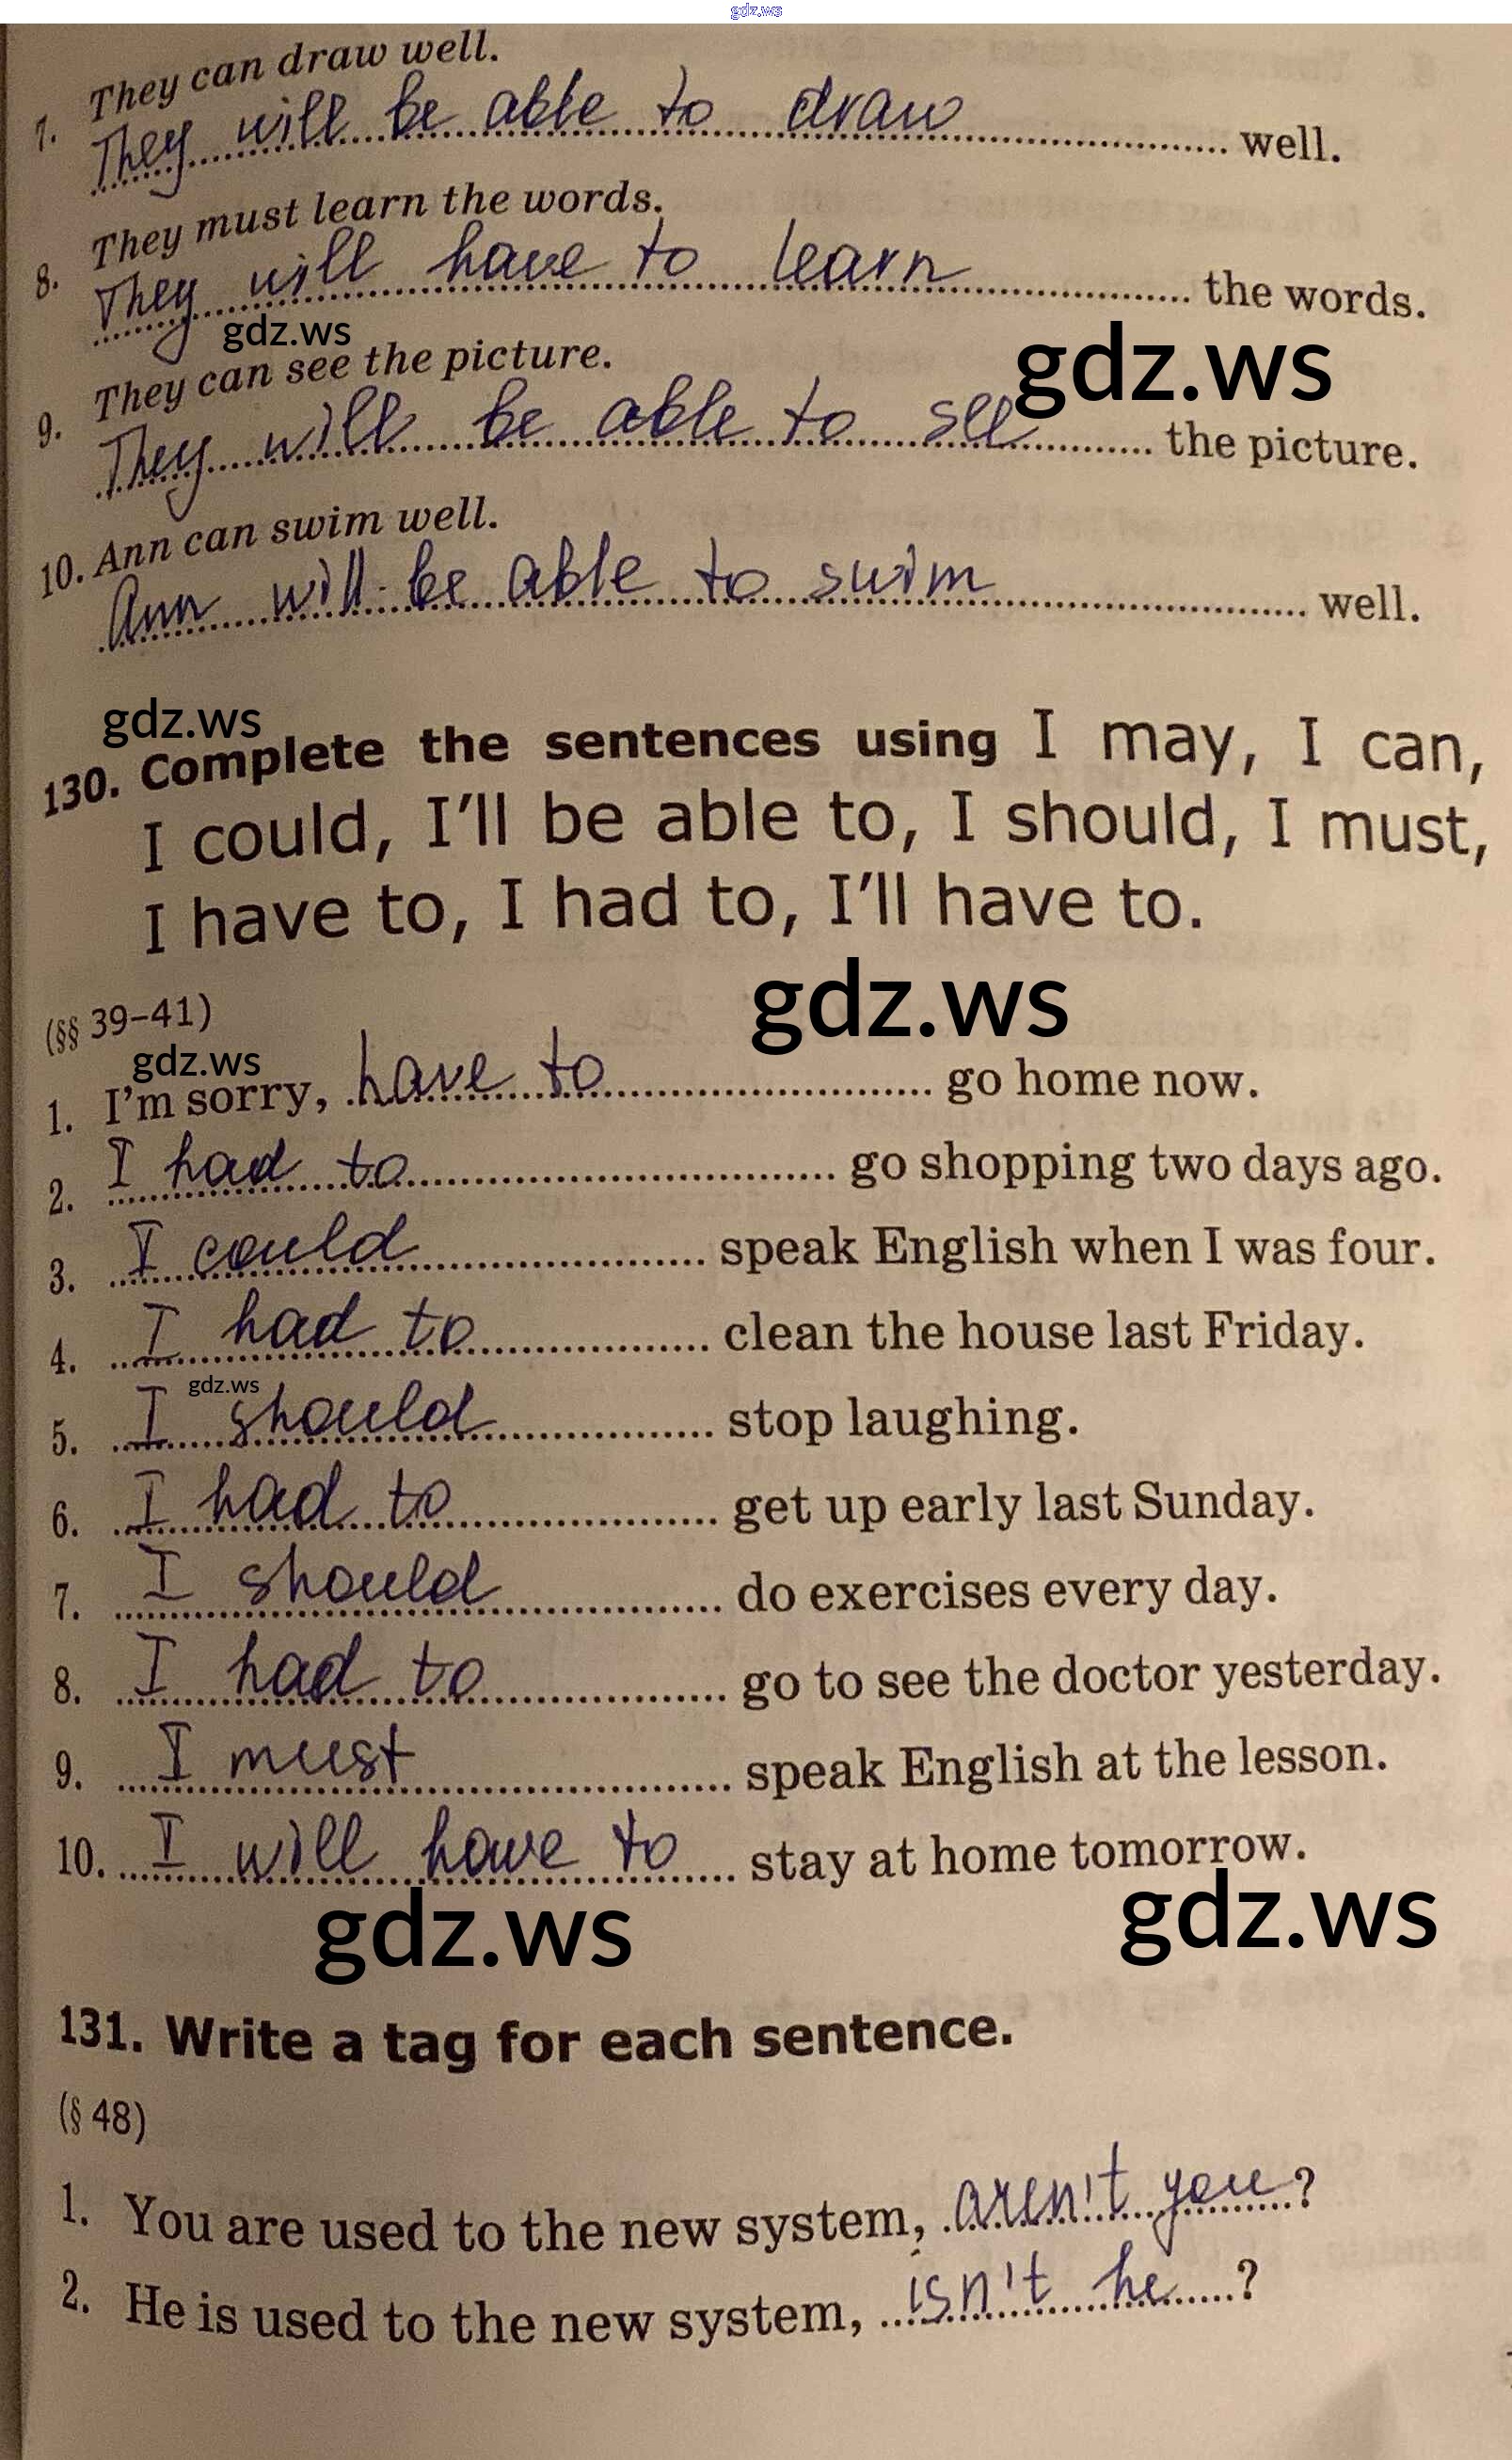 gdz.ws
They can draw well.
7. They will be able to draw well.
They must learn the words.
8. They will have to learn the words.
gdz.ws
They can see the picture.
gdz.ws
9. They will be able to see the picture.
10. Ann can swim well.
Ann will be able to swim well.
gdz.ws
130. Complete the sentences using I may, I can,
I could, I'll be able to, I should, I must,
I have to, I had to, I'll have to.
gdz.ws
(§§ 39–41)
gdz.ws
1. I'm sorry, have to go home now.
2. I had to go shopping two days ago.
3. I could speak English when I was four.
4. I had to clean the house last Friday.
gdz.ws
5. I should stop laughing.
6. I had to get up early last Sunday.
7. I should do exercises every day.
8. I had to go to see the doctor yesterday.
9. I must speak English at the lesson.
10. I will have to stay at home tomorrow.
gdz.ws
gdz.ws
131. Write a tag for each sentence.
(§ 48)
1. You are used to the new system, aren't you?
2. He is used to the new system, isn't he?